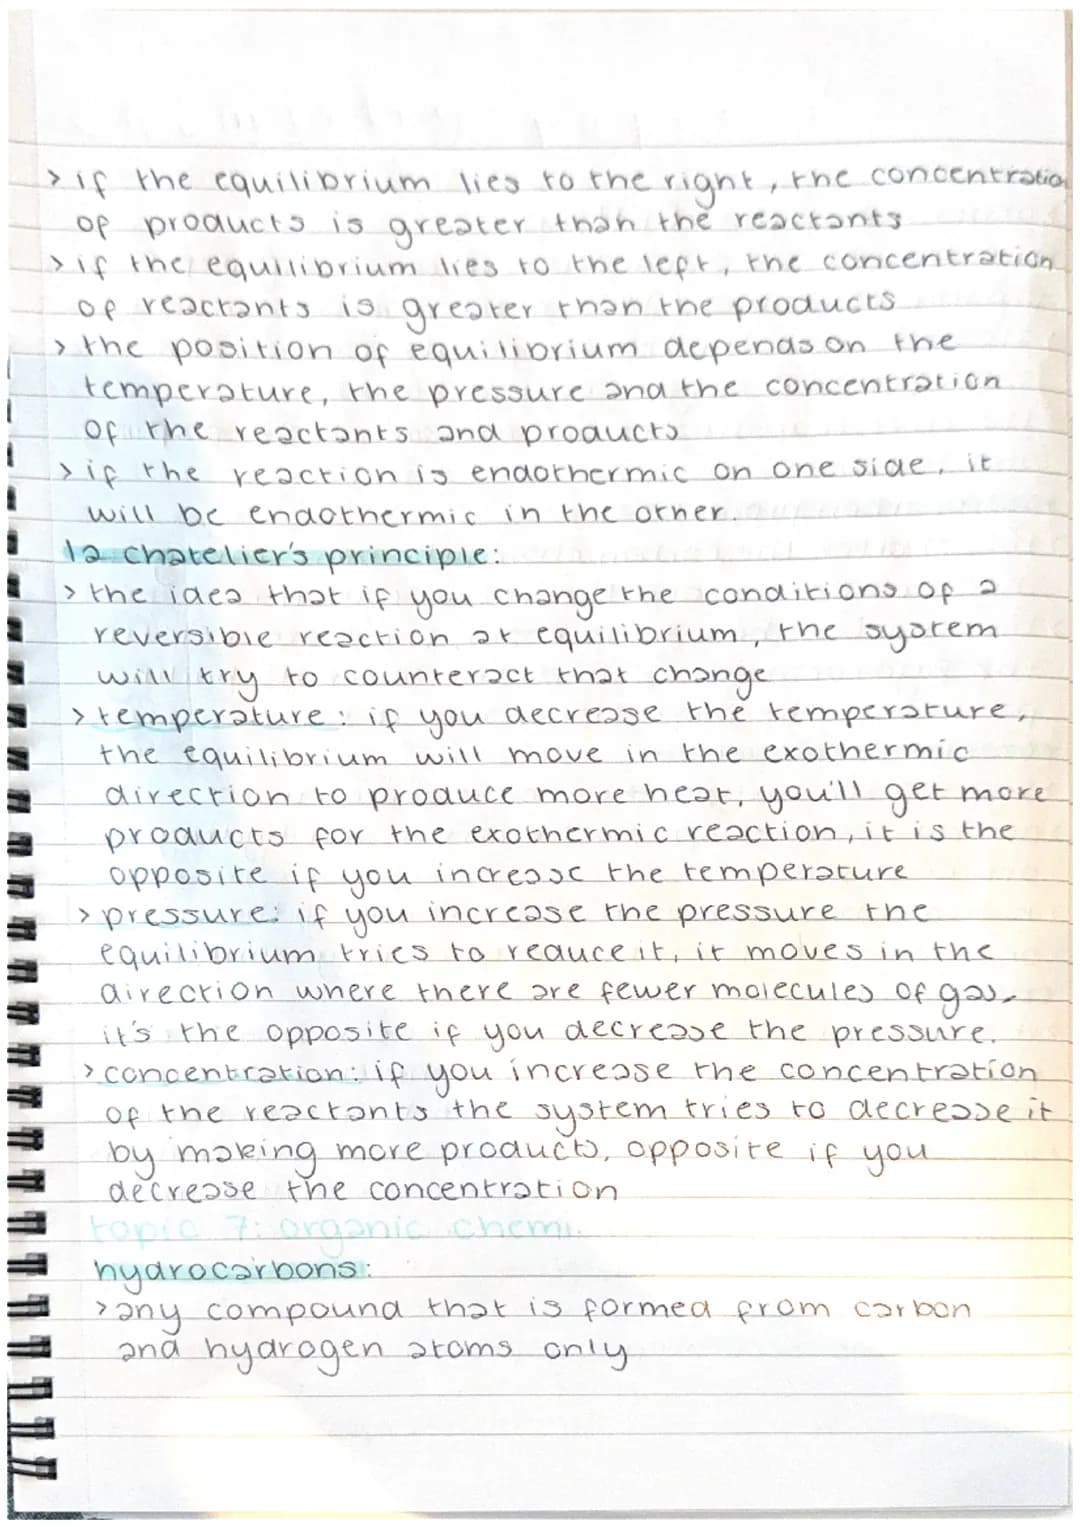 > if the equilibrium lies to the right, the concentration
of products is greater than the reactants
> if the equilibrium lies to the left, the concentration
of reactants is greater than the products
> the position of equilibrium depends on the
temperature, the pressure and the concentration
of the reactants and products
> if the reaction is endothermic on one side, it
will be endothermic in the other.
la chatelier's principle:
> the idea that if you change the conditions of a
reversible reaction at equilibrium, the system
will try to counteract that change
> temperature: if you decrease the temperature,
the equilibrium will move in the exothermic
direction to produce more heat, you'll get more
products for the exothermic reaction, it is the
opposite if you increase the temperature
> pressure: if you increase the pressure the
equilibrium tries to reduce it, it moves in the
direction where there are fewer molecules of gas.
it's the opposite if you decrease the pressure.
> concentration: if you increase the concentration
of the reactants the system tries to decrease it
by making more products, opposite if you
decrease the concentration
topic 7: organic chemi.
hydrocarbons:
> any compound that is formed from carbon
and hydrogen atoms only